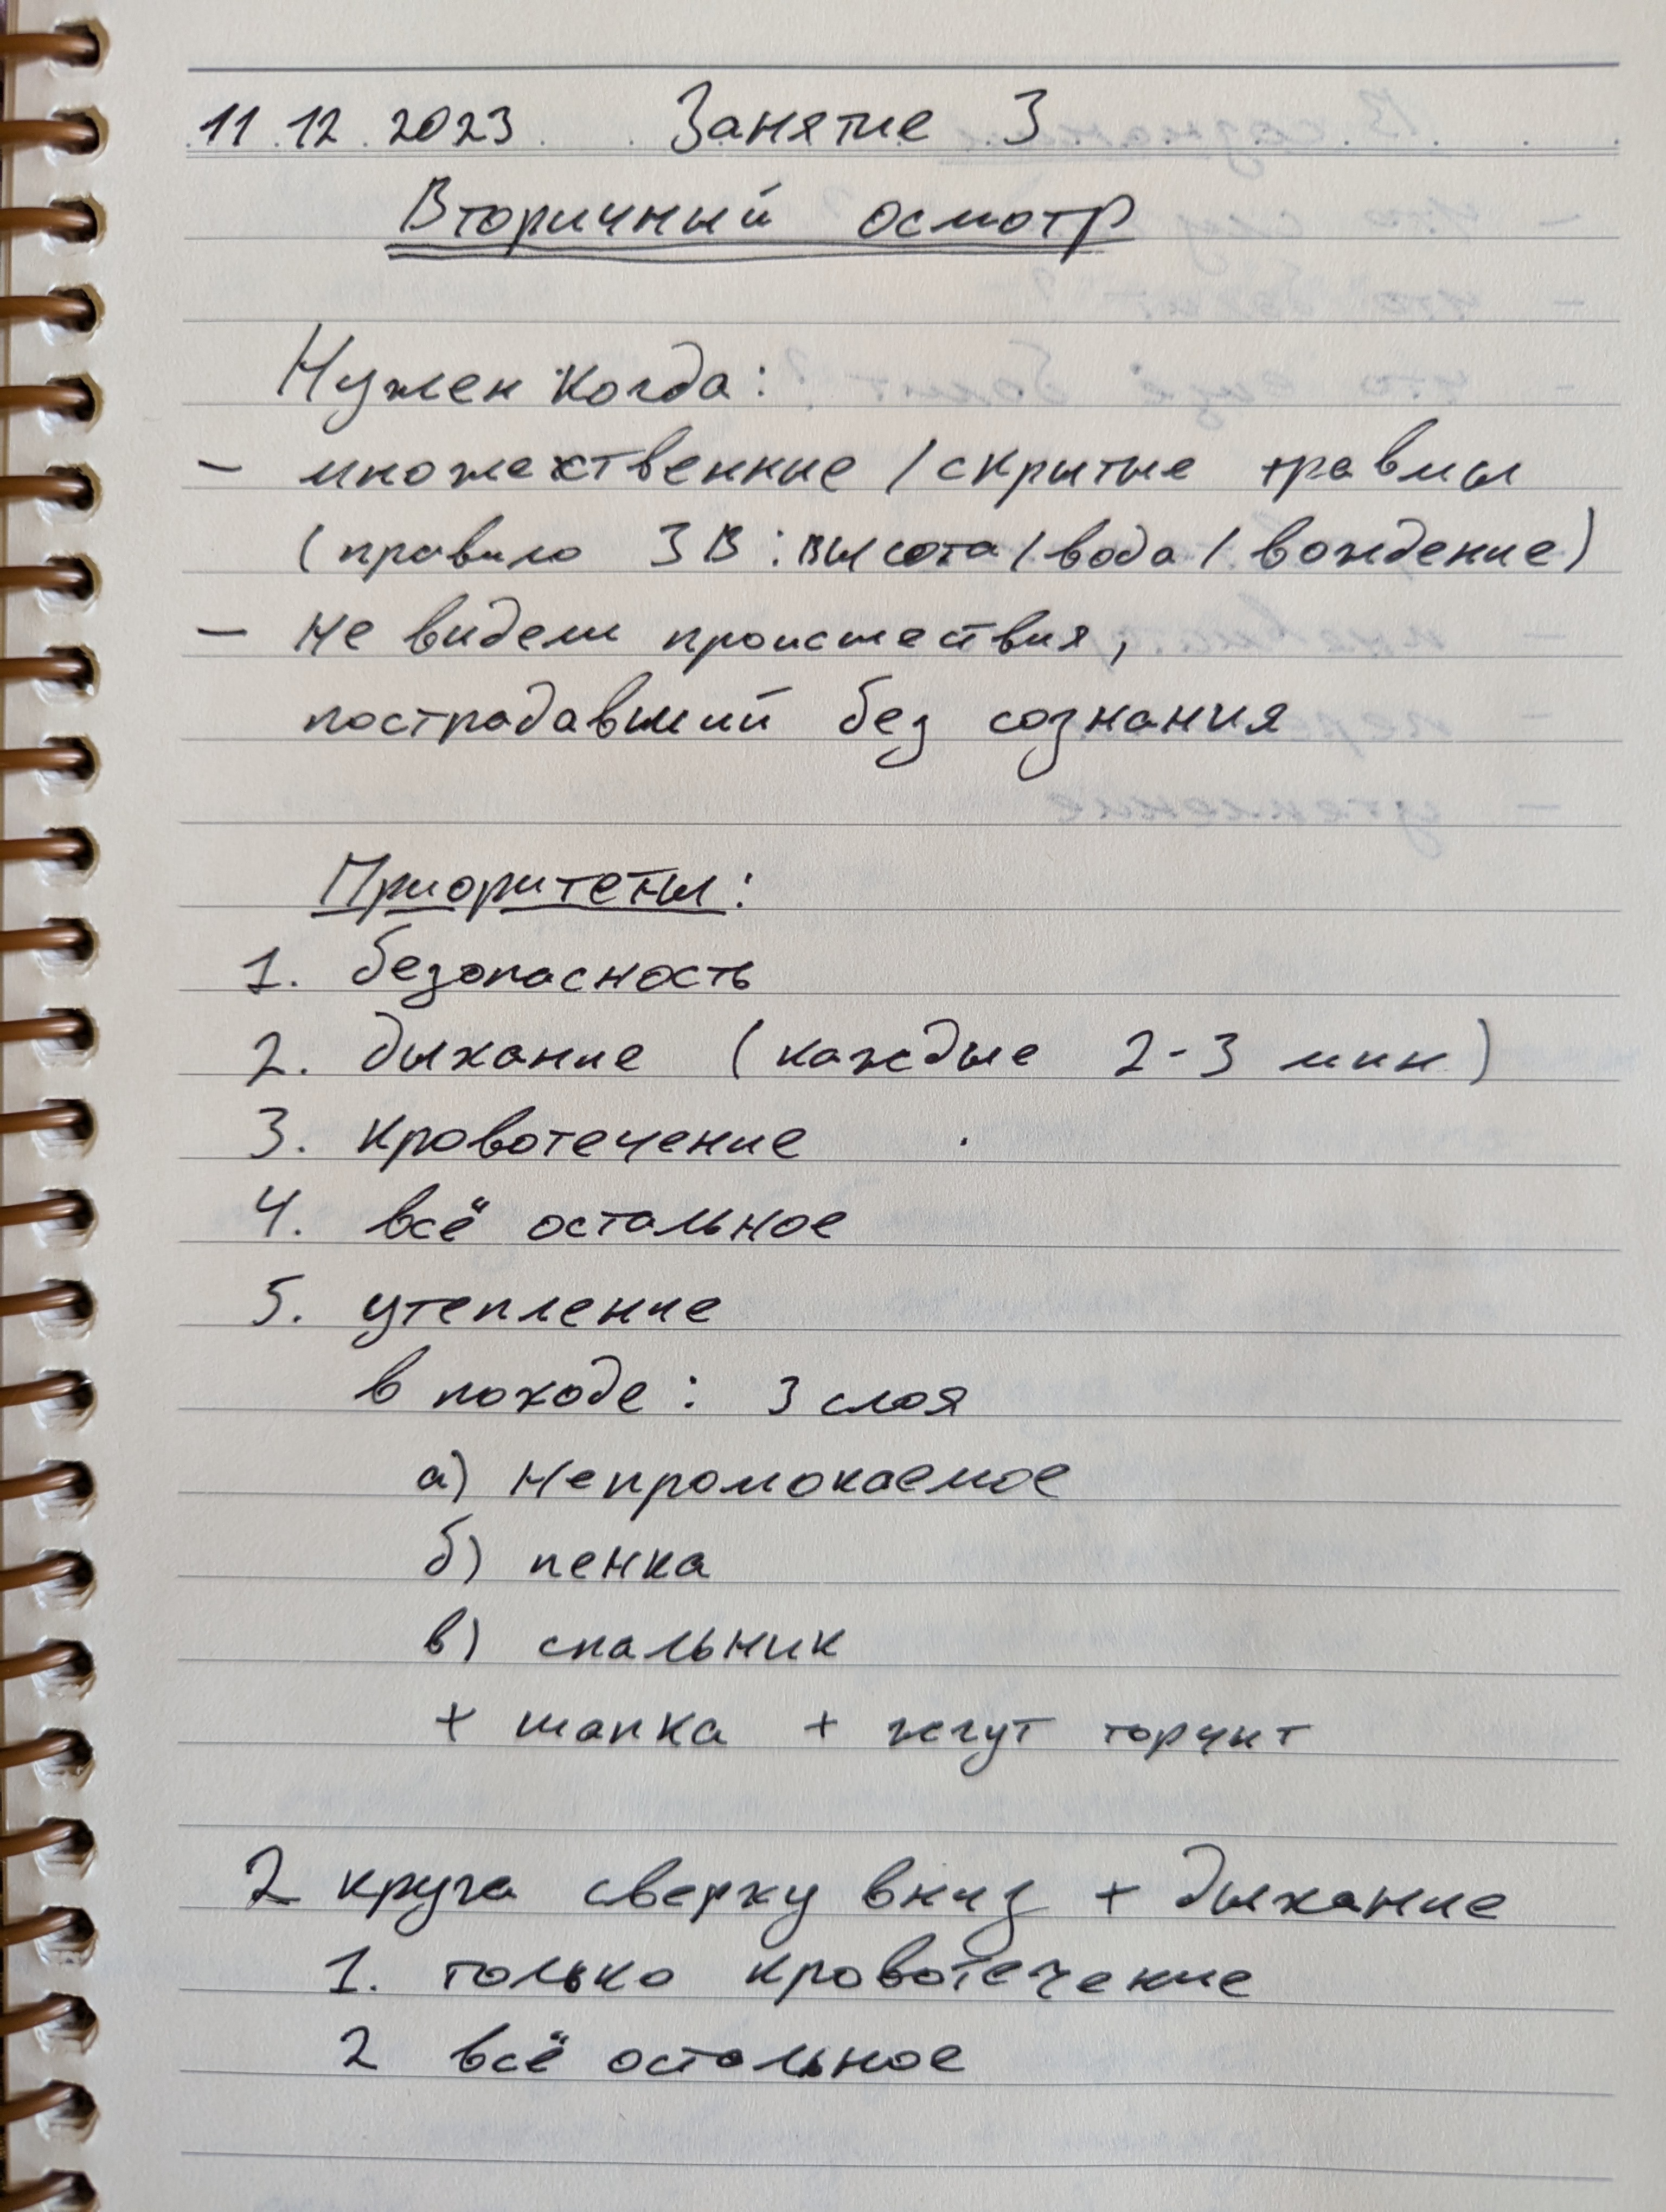 11.12.2023. Занятие 3
Вторичный осмотр
Нужен когда:
- множественные / скрытые травмы
(правило 3В: высота / вода / вождение)
- не видели происшествия,
пострадавший без сознания
Приоритеты:
1. безопасность
2. дыхание (каждые 2-3 мин)
3. кровотечение
4. всё остальное
5. утепление
в походе: 3 слоя
а) непромокаемое
б) пенка
в) спальник
+ шапка + жгут торчит
2 круга сверху вниз + дыхание
1. только кровотечение
2 всё остальное